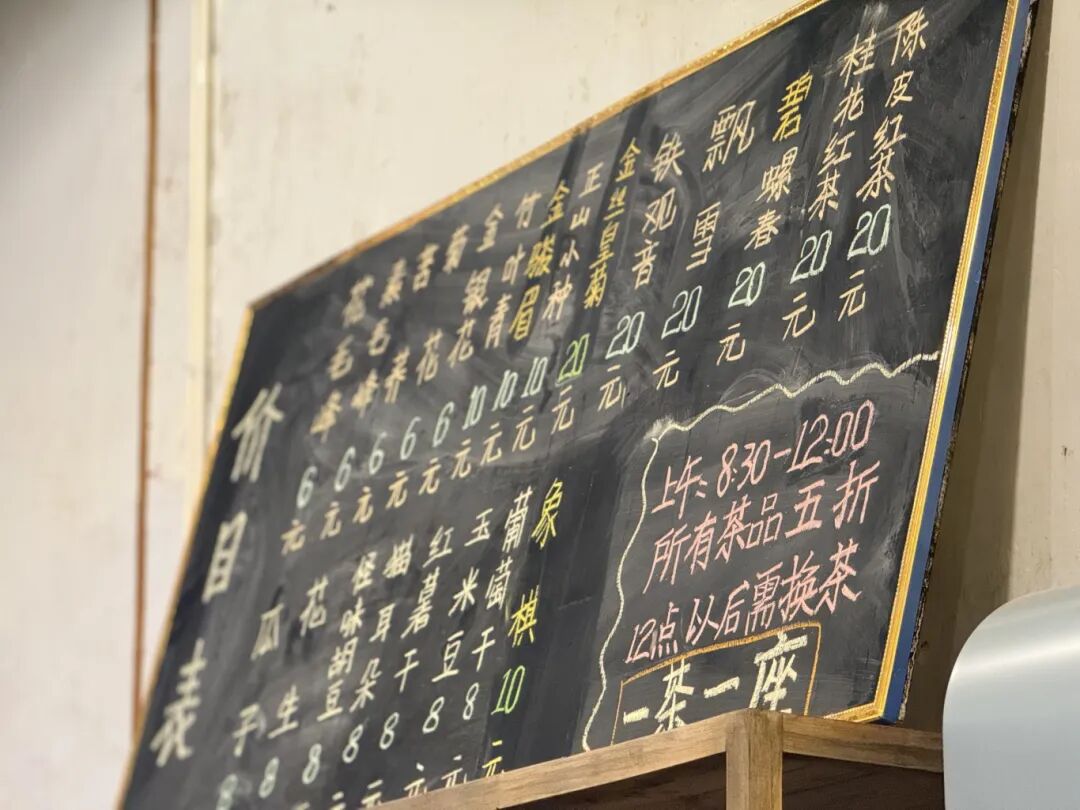 价目表
花毛峰6元
素毛峰6元
苦荞6元
菊花6元
金银花6元
竹叶青10元
金骏眉10元
正山小种10元
金丝皇菊20元
铁观音20元
飘雪20元
碧螺春20元
桂花红茶20元
陈皮红茶20元
瓜子8
花生8
怪味胡豆8元
猫耳朵8元
红薯干8元
玉米豆8元
葡萄干8元
象棋10元
上午:8:30-12:00
所有茶品五折
12点以后需换茶
一茶一座